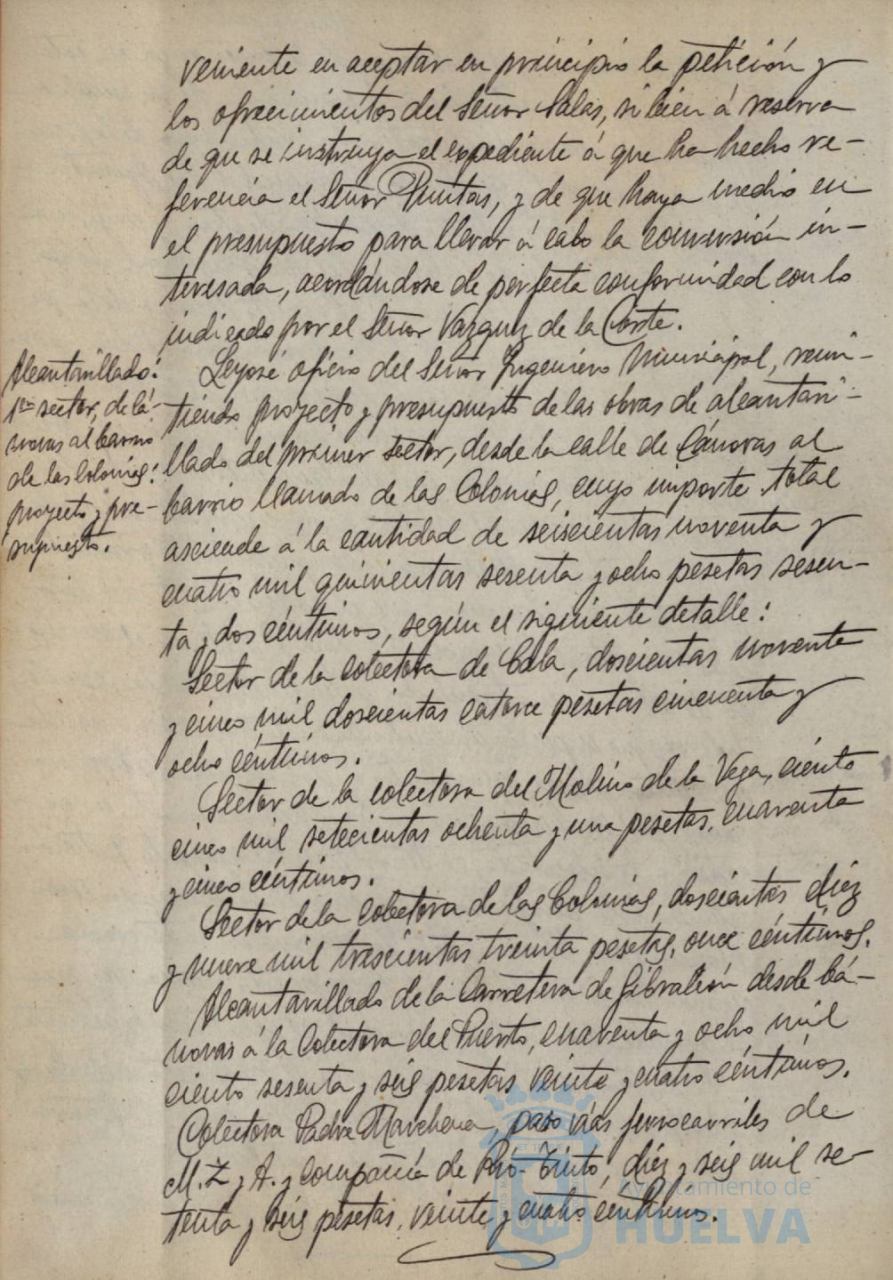 veniente en aceptar en principio la petición y
los ofrecimientos del Señor Salas, si bien á reserva
de que se instruya el expediente á que ha hecho re-
ferencia el Señor Puntas, y de que haya medio en
el presupuesto para llevar á cabo la conversión in-
teresada, acordándose de perfecta conformidad con lo
indicado por el Señor Vazquez de la Corte.
Alcantarillado:
1er sector, de Cá-
novas al barrio
de las Colonias:
proyecto y pre-
supuesto.
Leyose oficio del Señor Ingeniero Municipal, remi-
tiendo proyecto y presupuesto de las obras de alcantari-
llado del primer sector, desde la calle de Cánovas al
barrio llamado de las Colonias, cuyo importe total
asciende á la cantidad de seiscientas noventa y
cuatro mil quinientas sesenta y ocho pesetas sesen-
ta y dos céntimos, según el siguiente detalle:
Sector de la colectora de Cala, doscientas noventa
y cinco mil doscientas catorce pesetas cincuenta y
ocho céntimos.
Sector de la colectora del Molino de la Vega, ciento
cinco mil setecientas ochenta y una pesetas, cuarenta
y cinco céntimos.
Sector de la colectora de las Colonias, doscientas diez
y nueve mil trescientas treinta pesetas, once céntimos.
Alcantarillado de la Carretera de Gibraleón desde Cá-
novas á la Colectora del Puerto, cuarenta y ocho mil
ciento sesenta y seis pesetas veinte y cuatro céntimos.
Colectora Padre Marchena, paso vías ferrocarriles de
M. Z. y A. y Compañía de Rio-Tinto, diez y seis mil se-
tenta y seis pesetas, veinte y cuatro céntimos.
Ayuntamiento de
HUELVA